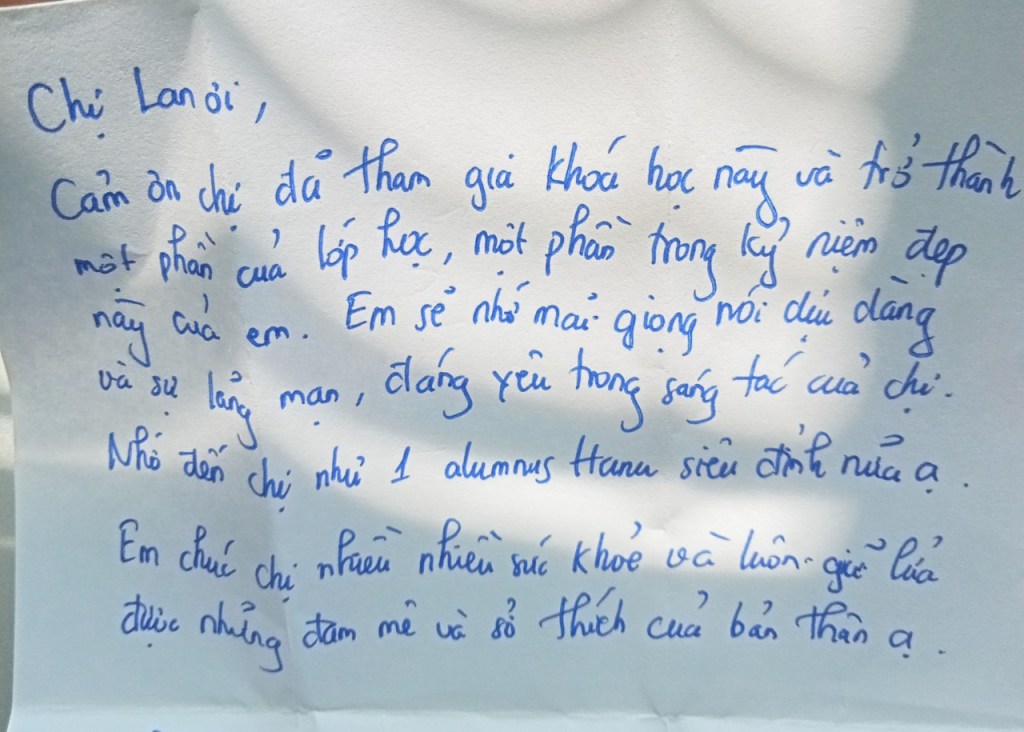 Chị Lan ơi,
Cảm ơn chị đã tham gia khoá học này và trở thành
một phần của lớp học, một phần trong kỷ niệm đẹp
này của em. Em sẽ nhớ mãi giọng nói dịu dàng
và sự lãng mạn, đáng yêu trong sáng tác của chị.
Nhớ đến chị như 1 alumnus Hanu siêu đỉnh nữa ạ.
Em chúc chị nhiều nhiều sức khoẻ và luôn giữ lửa
được những đam mê và sở thích của bản thân ạ.